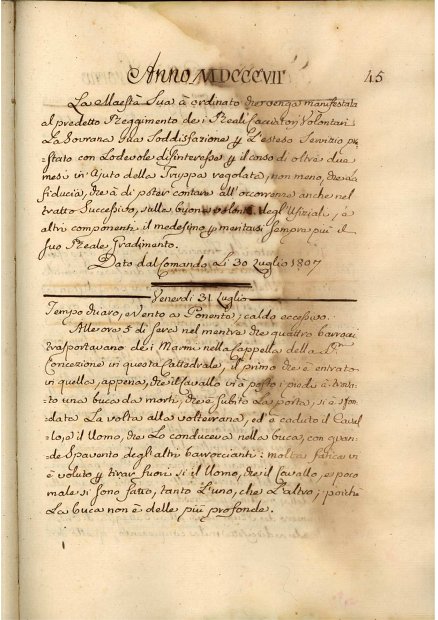 Anno MDCCCVII 45
La Maestà Sua à ordinato che venga manifestata
al predetto Reggimento dei Reali Cacciatori Volontari
La Sovrana Sua Soddisfazione p L'esteso Servizio pre-
stato con Lodevole disinteresse p il corso di oltre due
mesi in ajuto della Truppa regolata, non meno, che la
fiducia, che à di poter contare all'occorrenza anche nel
tratto Successivo, sulla buona volontà degl'Ufiziali, e
altri componenti il medesimo p meritarsi sempre più il
suo Reale Gradimento.
Dato dal Comando Li 30 Luglio 1807
Venerdi 31 Luglio
Tempo chiaro, e Vento a Ponente; caldo eccessivo.
Alle ore 5 di sera nel mentre che quattro barrocci
trasportavano dei Marmi nella Cappella della
Concezione in questa Cattedrale, il primo che è entrato
in quella, appena, che il Cavallo vi à posto i piedi à
to una buca da morti, che è subito La porta, si è sfon-
data La volta alla volterrana, ed è caduto il Caval-
lo, e il Uomo, che Lo conduceva nella buca, con gran-
de Spavento degl'altri barroccianti: molta fatica vi
è voluto p tirar fuori sì il Uomo, che il Cavallo, e poco
male si sono fatto, tanto L'uno, che L'altro; poichè
La buca non è delle più profonde.